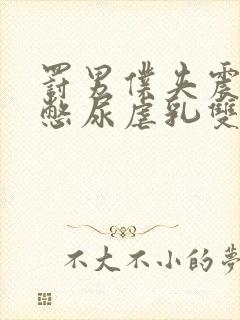 罰男僕失震
憋尿虐乳雙
不大不小的夢